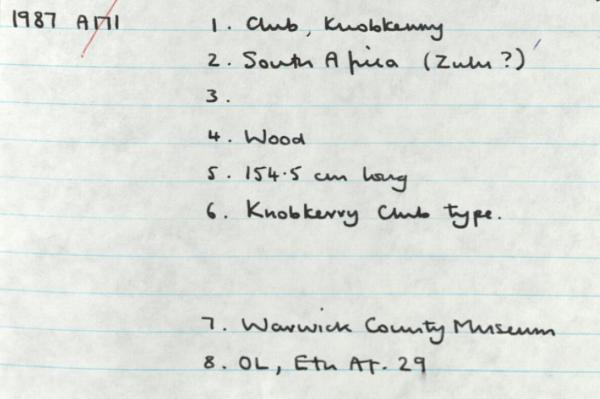 1987 A171 1. Club, Knobkerry
2. South Africa (Zulu?)
3.
4. Wood
5. 154.5 cm long
6. Knobkerry Club type.
7. Warwick County Museum
8. OL, Eth Af. 29